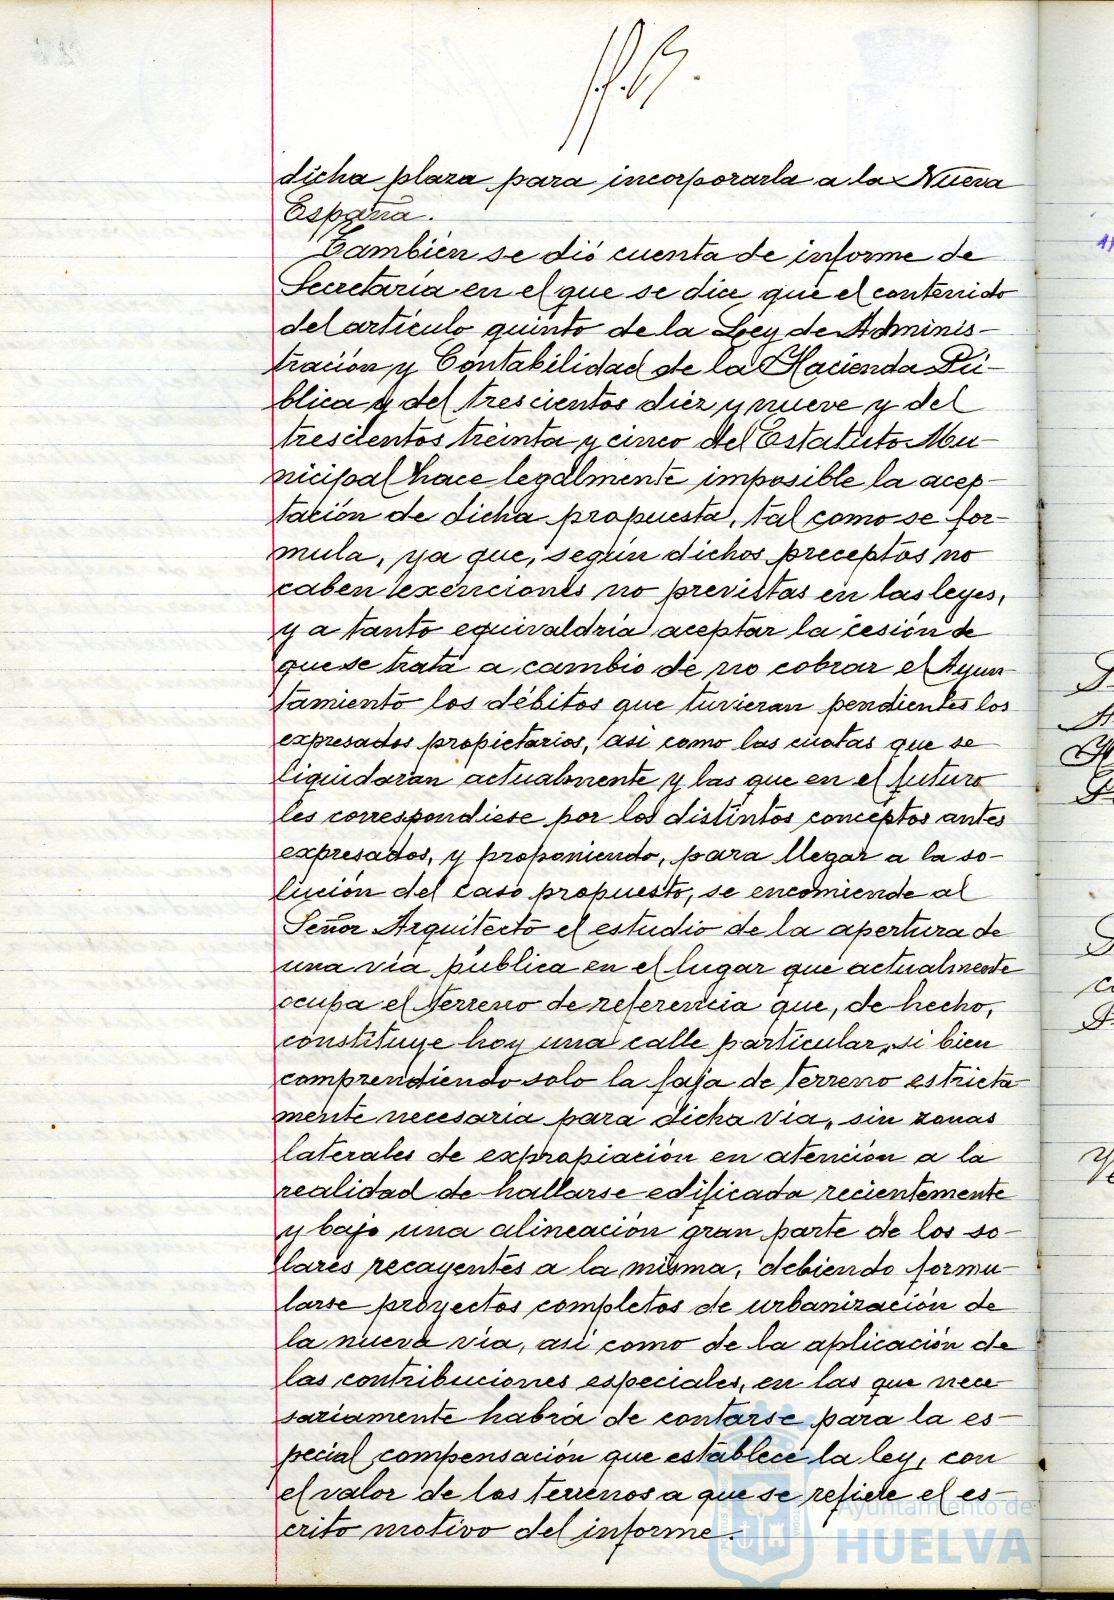 dicha plaza para incorporarla a la Nueva
España.
También se dió cuenta de informe de
Secretaría en el que se dice que el contenido
del artículo quinto de la Ley de Adminis-
tración y Contabilidad de la Hacienda Pú-
blica y del trescientos diez y nueve y del
trescientos treinta y cinco del Estatuto Mu-
nicipal hace legalmente imposible la acep-
tación de dicha propuesta, tal como se for-
mula, ya que, según dichos preceptos no
caben exenciones no previstas en las leyes,
y a tanto equivaldría aceptar la cesión de
que se trata a cambio de no cobrar el Ayun-
tamiento los débitos que tuvieran pendientes los
expresados propietarios, así como las cuotas que se
liquidaran actualmente y las que en el futuro
les correspondiese por los distintos conceptos antes
expresados, y proponiendo, para llegar a la so-
lución del caso propuesto, se encomiende al
Señor Arquitecto el estudio de la apertura de
una vía pública en el lugar que actualmente
ocupa el terreno de referencia que, de hecho,
constituye hoy una calle particular, si bien
comprendiendo solo la faja de terreno estricta-
mente necesaria para dicha vía, sin zonas
laterales de expropiación en atención a la
realidad de hallarse edificada recientemente
y bajo una alineación gran parte de los so-
lares recayentes a la misma, debiendo formu-
larse proyectos completos de urbanización de
la nueva vía, así como de la aplicación de
las contribuciones especiales, en las que nece-
sariamente habrá de contarse para la es-
pecial compensación que establece la ley, con
el valor de los terrenos a que se refiere el es-
crito motivo del informe.
Ayuntamiento de
HUELVA